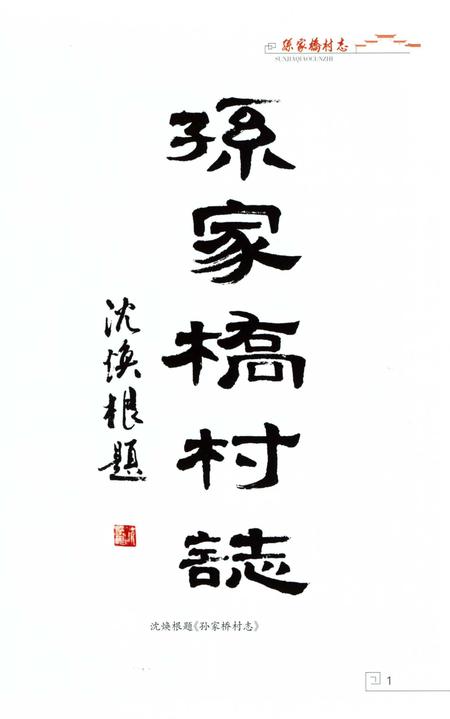 孫家橋村志
SUNJIAQIAOCUNZHI
孫家橋村誌
沈焕根題
沈焕根题《孙家桥村志》
1